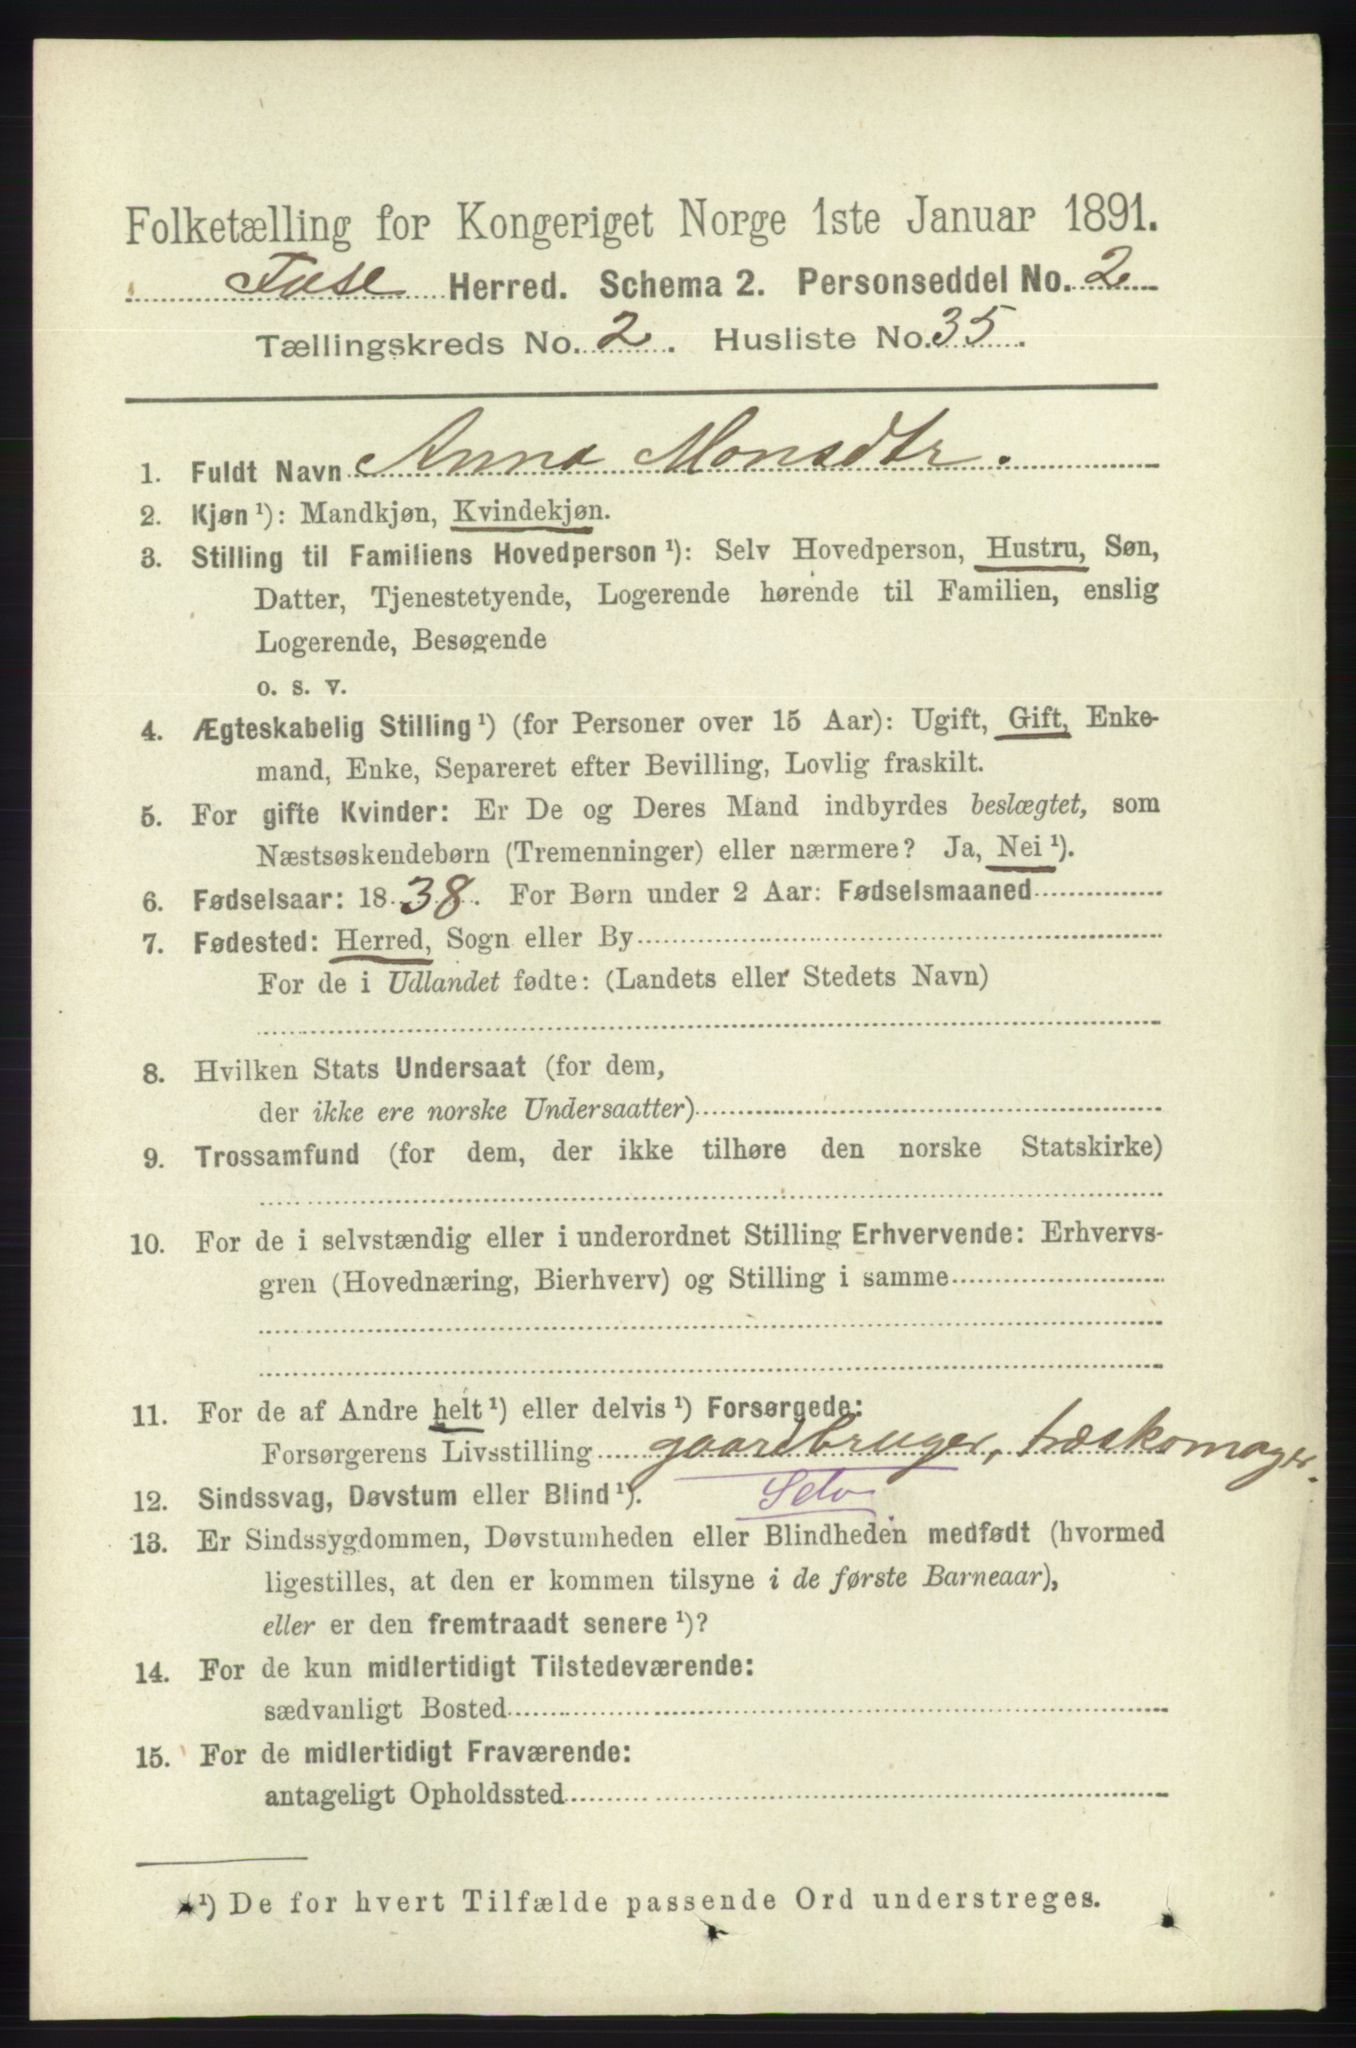 Folketælling for Kongeriget Norge 1ste Januar 1891.
Fuse Herred. Schema 2. Personseddel No. 2
Tællingskreds No. 2. Husliste No. 35.
1. Fuldt Navn Anna Monsdtr.
2. Kjøn ¹): Mandkjøn, Kvindekjøn.
3. Stilling til Familiens Hovedperson ¹): Selv Hovedperson, Hustru, Søn,
Datter, Tjenestetyende, Logerende hørende til Familien, enslig
Logerende, Besøgende
o. s. v.
4. Ægteskabelig Stilling ¹) (for Personer over 15 Aar): Ugift, Gift, Enke-
mand, Enke, Separeret efter Bevilling, Lovlig fraskilt.
5. For gifte Kvinder: Er De og Deres Mand indbyrdes beslægtet, som
Næstsøskendebørn (Tremenninger) eller nærmere? Ja, Nei ¹).
6. Fødselsaar: 1838. For Børn under 2 Aar: Fødselsmaaned
7. Fødested: Herred, Sogn eller By
For de i Udlandet fødte: (Landets eller Stedets Navn)
8. Hvilken Stats Undersaat (for dem,
der ikke ere norske Undersaatter)
9. Trossamfund (for dem, der ikke tilhøre den norske Statskirke)
10. For de i selvstændig eller i underordnet Stilling Erhvervende: Erhvervs-
gren (Hovednæring, Bierhverv) og Stilling i samme
11. For de af Andre helt ¹) eller delvis ¹) Forsørgede:
Forsørgerens Livsstilling gaardbruger, træskomager.
12. Sindssvag, Døvstum eller Blind ¹). Selv
13. Er Sindssygdommen, Døvstumheden eller Blindheden medfødt (hvormed
ligestilles, at den er kommen tilsyne i de første Barneaar),
eller er den fremtraadt senere ¹)?
14. For de kun midlertidigt Tilstedeværende:
sædvanligt Bosted
15. For de midlertidigt Fraværende:
antageligt Opholdssted
¹) De for hvert Tilfælde passende Ord understreges.